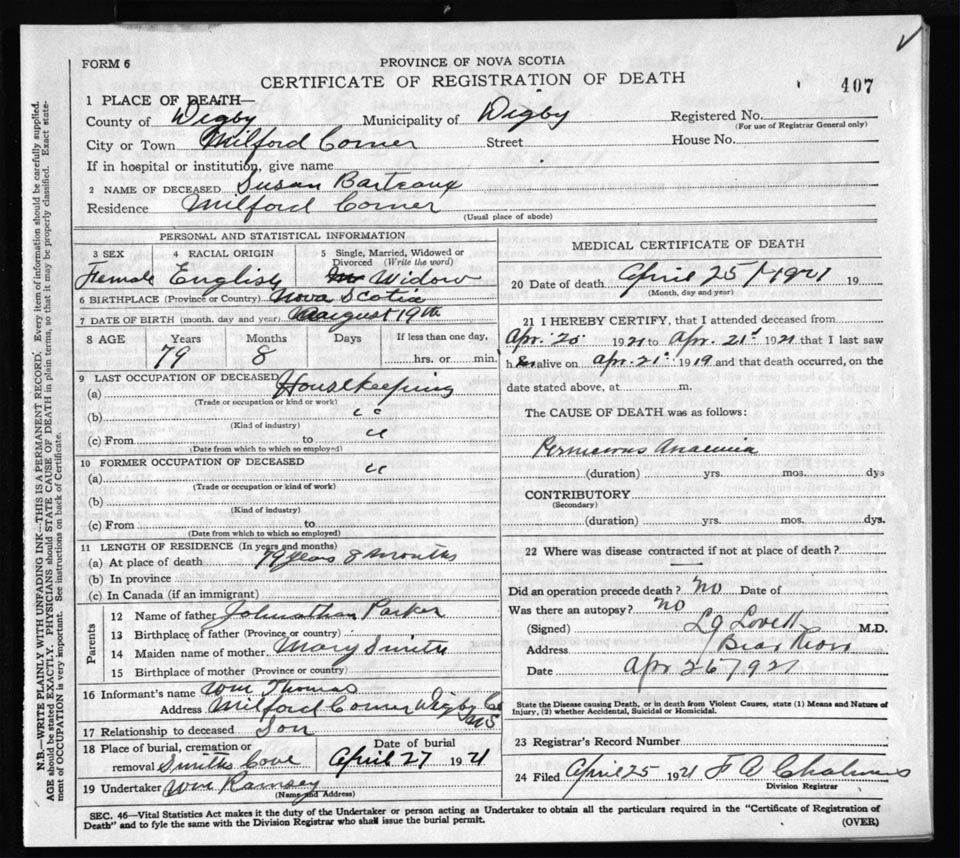 FORM 6
PROVINCE OF NOVA SCOTIA
CERTIFICATE OF REGISTRATION OF DEATH
407
1 PLACE OF DEATH—
County of Digby Municipality of Digby Registered No.
(For use of Registrar General only)
City or Town Milford Corner Street House No.
If in hospital or institution, give name
2 NAME OF DECEASED Susan Barteaux
Residence Milford Corner
(Usual place of abode)
PERSONAL AND STATISTICAL INFORMATION
3 SEX 4 RACIAL ORIGIN 5 Single, Married, Widowed or Divorced (Write the word)
Female English Widow
6 BIRTHPLACE (Province or Country) Nova Scotia
7 DATE OF BIRTH (month, day and year) August 19th
8 AGE Years Months Days If less than one day,
79 8 hrs. or min.
9 LAST OCCUPATION OF DECEASED
(a) Housekeeping
(Trade or occupation or kind or work)
(b) " "
(Kind of industry)
(c) From to "
(Date from which to which so employed)
10 FORMER OCCUPATION OF DECEASED "
(a)
(Trade or occupation or kind of work)
(b)
(Kind of industry)
(c) From to
(Date from which to which so employed)
11 LENGTH OF RESIDENCE (In years and months)
(a) At place of death 79 years 8 months
(b) In province
(c) In Canada (if an immigrant)
Parents
12 Name of father Johnathan Parker
13 Birthplace of father (Province or country)
14 Maiden name of mother Mary Smith
15 Birthplace of mother (Province or country)
16 Informant's name Wm Thomas
Address Milford Corner Digby Co
NS
17 Relationship to deceased Son
18 Place of burial, cremation or removal Smiths Cove
Date of burial
April 27 1921
19 Undertaker Wm Ramsey
(Name and Address)
MEDICAL CERTIFICATE OF DEATH
20 Date of death April 25/1921 19
(Month, day and year)
21 I HEREBY CERTIFY, that I attended deceased from
Apr. 20 1921 to Apr. 21st 1921 that I last saw
h alive on Apr. 21st 1919 and that death occurred, on the
date stated above, at m.
The CAUSE OF DEATH was as follows:
Pernicious Anaemia
(duration) yrs. mos. dys
CONTRIBUTORY
(Secondary)
(duration) yrs. mos. dys.
22 Where was disease contracted if not at place of death?
Did an operation precede death? No Date of
Was there an autopsy? No
(Signed) L J Lovett M.D.
Address Bear River
Date Apr 26/921
State the Disease causing Death, or in death from Violent Causes, state (1) Means and Nature of
Injury, (2) whether Accidental, Suicidal or Homicidal.
23 Registrar's Record Number
24 Filed April 25 1921 F A Chalmers
Division Registrar
SEC. 46—Vital Statistics Act makes it the duty of the Undertaker or person acting as Undertaker to obtain all the particulars required in the "Certificate of Registration of
Death" and to fyle the same with the Division Registrar who shall issue the burial permit.
(OVER)
N.B.—WRITE PLAINLY WITH UNFADING INK—THIS IS A PERMANENT RECORD. Every item of information should be carefully supplied.
AGE should be stated EXACTLY. PHYSICIANS should STATE CAUSE OF DEATH in plain terms, so that it may be properly classified. Exact state-
ment of OCCUPATION is very important. See instructions on back of Certificate.